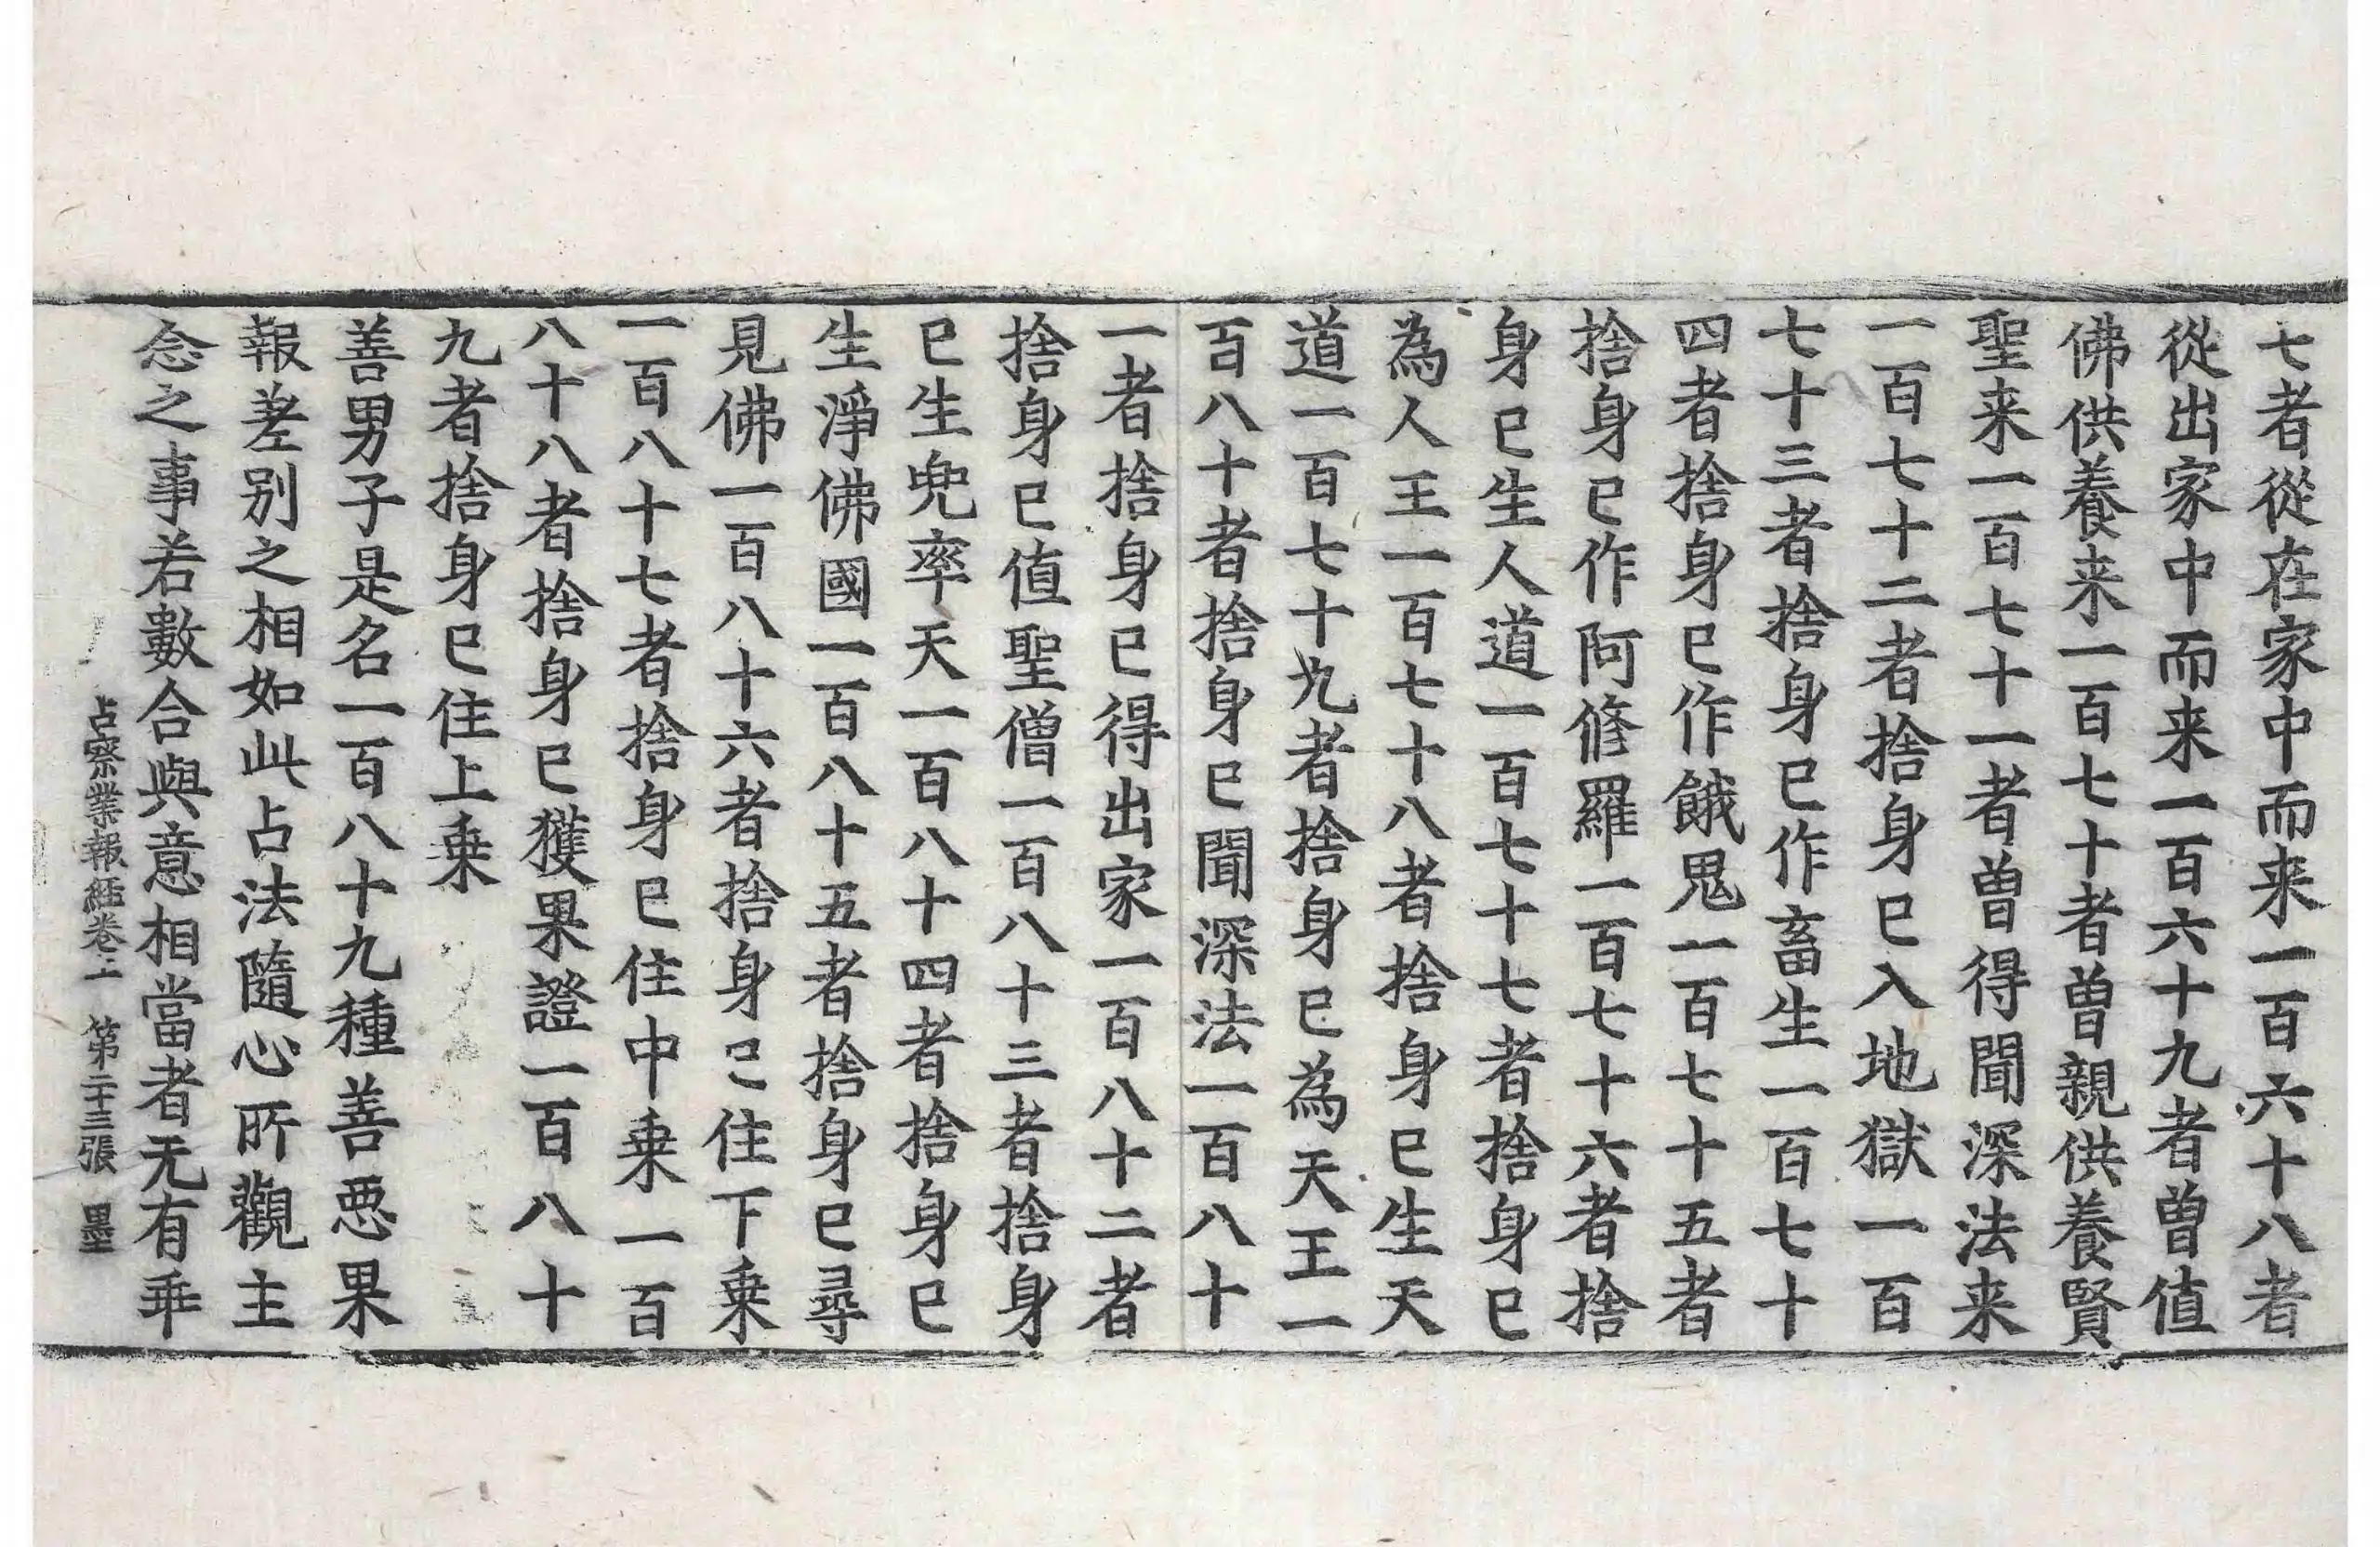 七者從在家中而来一百六十八者
從出家中而来一百六十九者曾值
佛供養来一百七十者曾親供養賢
聖来一百七十一者曾得聞深法来
一百七十二者捨身已入地獄一百
七十三者捨身已作畜生一百七十
四者捨身已作餓鬼一百七十五者
捨身已作阿修羅一百七十六者捨
身已生人道一百七十七者捨身已
為人王一百七十八者捨身已生天
道一百七十九者捨身已為天王一
百八十者捨身已聞深法一百八十
一者捨身已得出家一百八十二者
捨身已值聖僧一百八十三者捨身
已生兜率天一百八十四者捨身已
生淨佛國一百八十五者捨身已尋
見佛一百八十六者捨身已住下乗
一百八十七者捨身已住中乗一百
八十八者捨身已獲果證一百八十
九者捨身已住上乗
善男子是名一百八十九種善惡果
報差别之相如此占法隨心所觀主
念之事若數合與意相當者无有乖
占察業報經卷上 第二十三張 墨